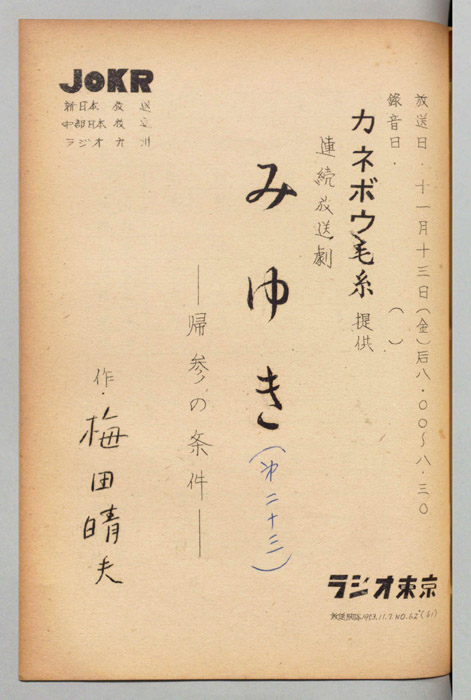 放送日．十一月十三日（金）后八．００〜八．三０
録音日．　　　　　（　）
カネボウ毛糸 提供
連続放送劇
みゆき（第二十三）
―帰参の条件―
作．梅田晴夫
JOKR
新日本放送
中部日本放送
ラジオ九州
ラジオ東京